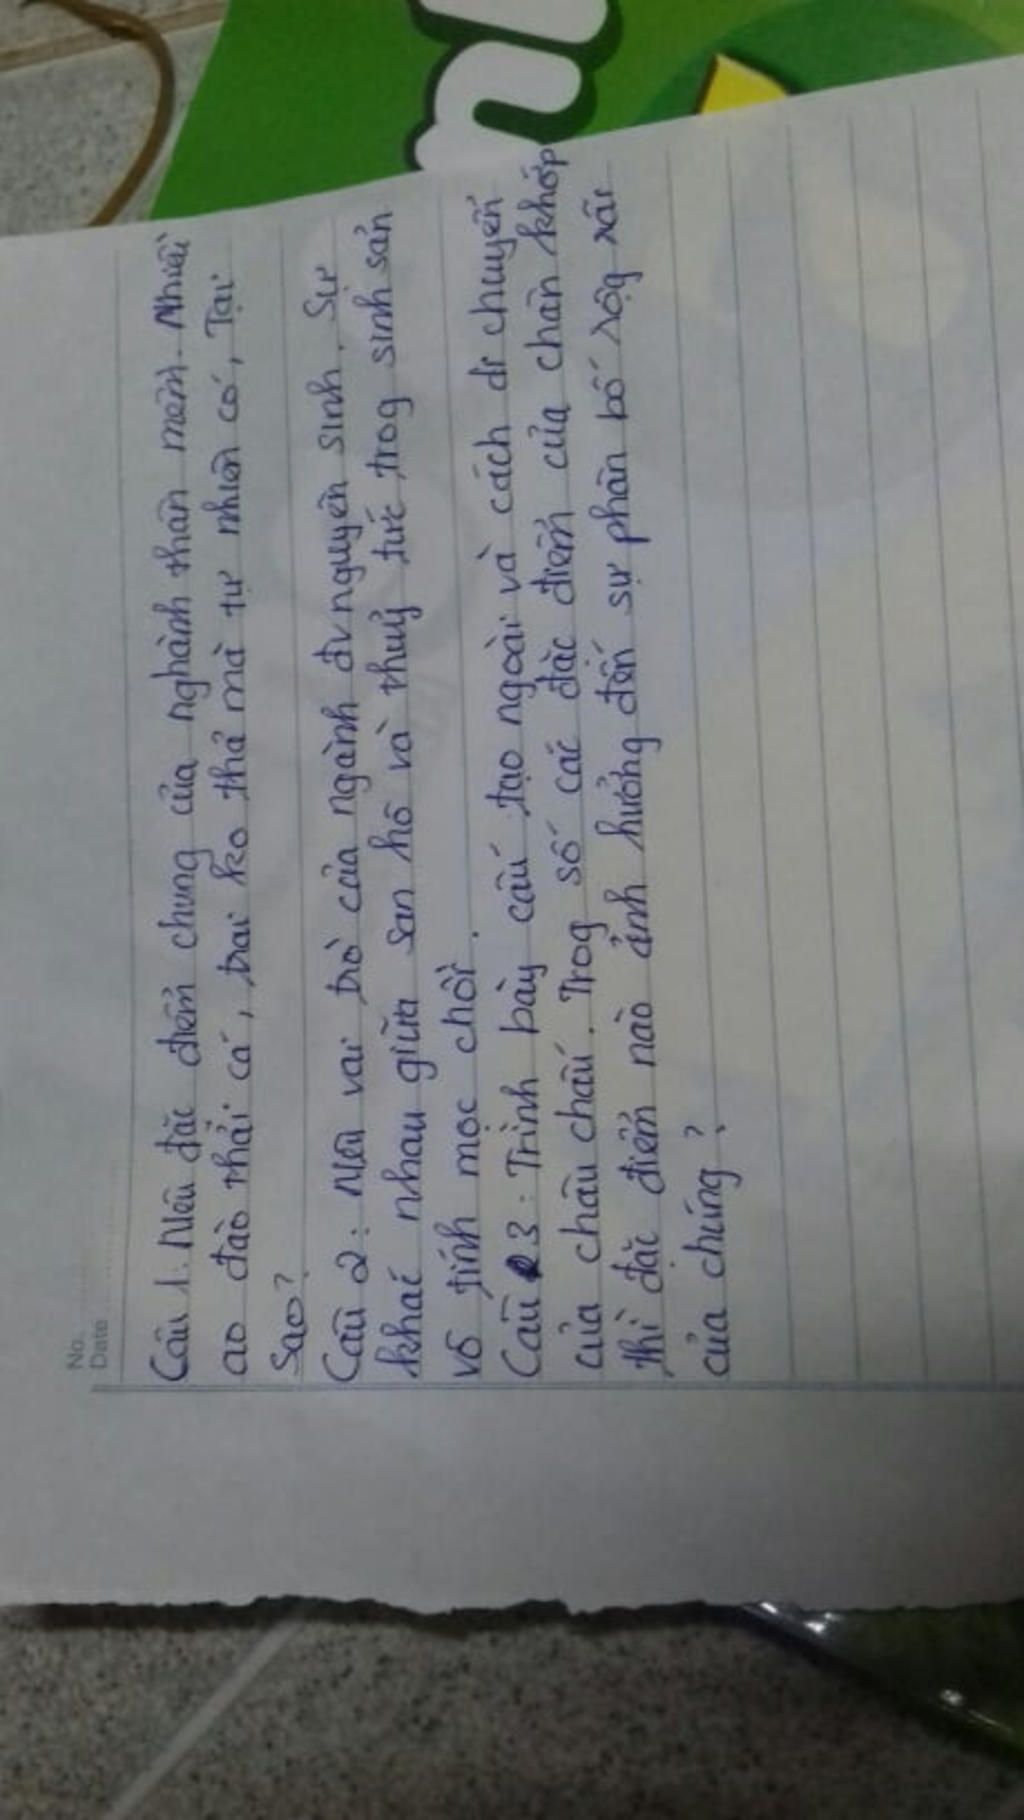 No.
Date
Câu 1. Nêu đặc điểm chung của nghành thân mềm. Nhiều
ao đào thải cá, trai ko thả mà tự nhiên có, Tại
Sao?
Câu 2: Nêu vai trò của ngành đv nguyên sinh. Sự
khác nhau giữa san hô và thuỷ tức trog sinh sản
vô tính mọc chồi.
Câu 3: Trình bày cấu tạo ngoài và cách di chuyển
của châu chấu. Trog số các đặc điểm của chân khớp
thì đặc điểm nào ảnh hưởng đến sự phân bố rộg rãi
của chúng?
n